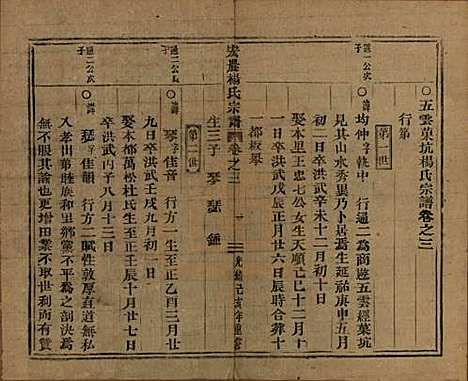 五雲菓坑楊氏宗譜卷之三
行第
第一世
通一公次子
諱均仲字執中 行通二為商遊五雲經菓坑
見其山水秀異乃卜居焉生延祐庚申五月
初二日卒洪武辛未十二月初十日
娶本里王忠七公女生天順己巳十月二十
一日卒洪武戊辰二月廿六日辰時合葬十
一都板擧
生三子 琴 瑟 鍾
宏農楊氏宗譜
卷之三
光緒己亥年重修
第二世
通二公長子
諱琴字佳音 行方一生至正乙酉三月廿
九日卒洪武壬戌九月初一日
娶本都萬松杜氏生至正壬辰十月廿七日
卒洪武丙子八月十三日
通二公次子
諱瑟字佳韻 行方二賦性敦厚直道無私
入孝出弟睦族和里鄉黨不平為之剖決焉
無不服其論也更增田業不取世利而有贊